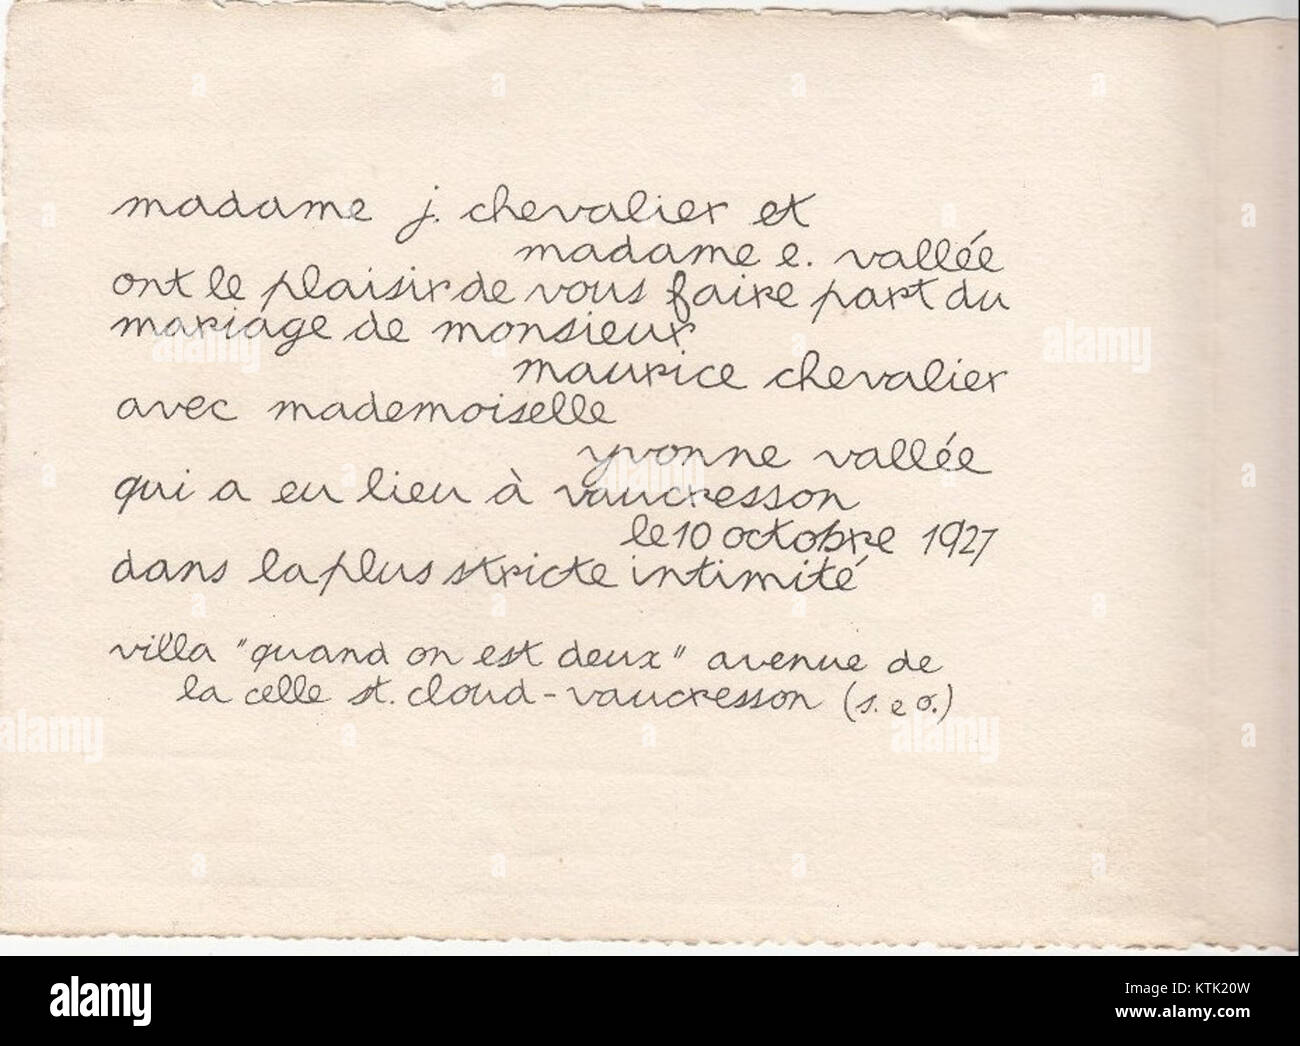 madame j. chevalier et
madame e. vallée
ont le plaisir de vous faire part du
mariage de monsieur
maurice chevalier
avec mademoiselle
yvonne vallée
qui a eu lieu à vaucresson
le 10 octobre 1927
dans la plus stricte intimité
villa "quand on est deux" avenue de
la celle st. cloud - vaucresson (s. e o.)
alamy
Image ID: KTK20W
www.alamy.com